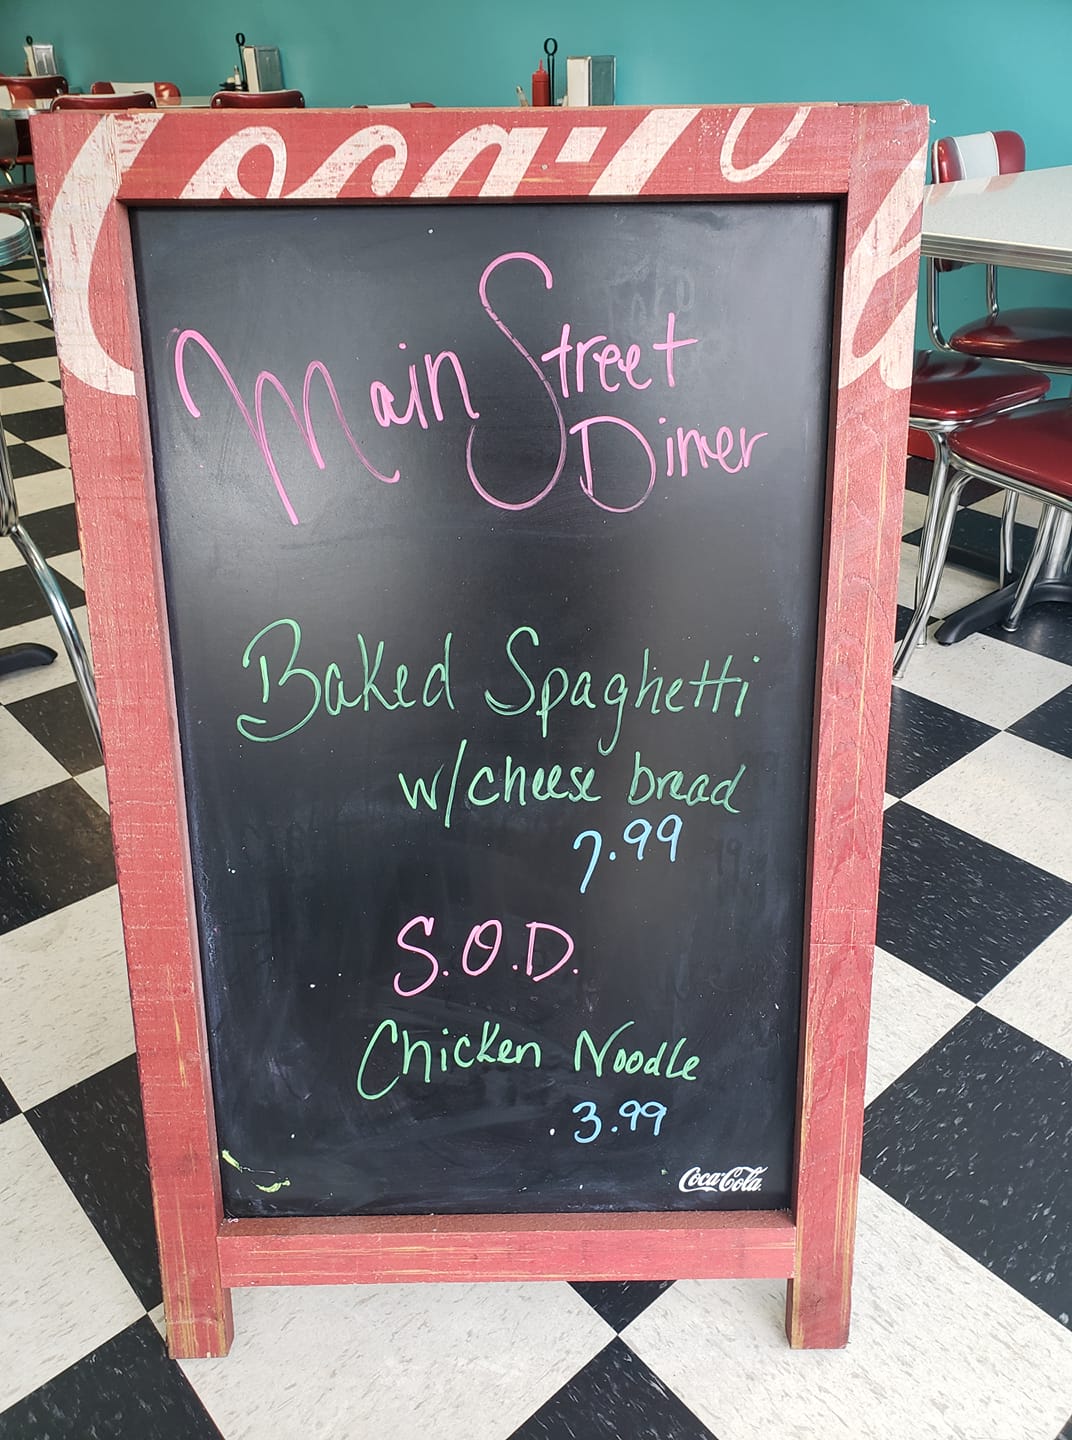 Coca-Co
Main Street
Diner
Baked Spaghetti
w/cheese bread
7.99
S.O.D.
Chicken Noodle
.3.99
Coca-Cola